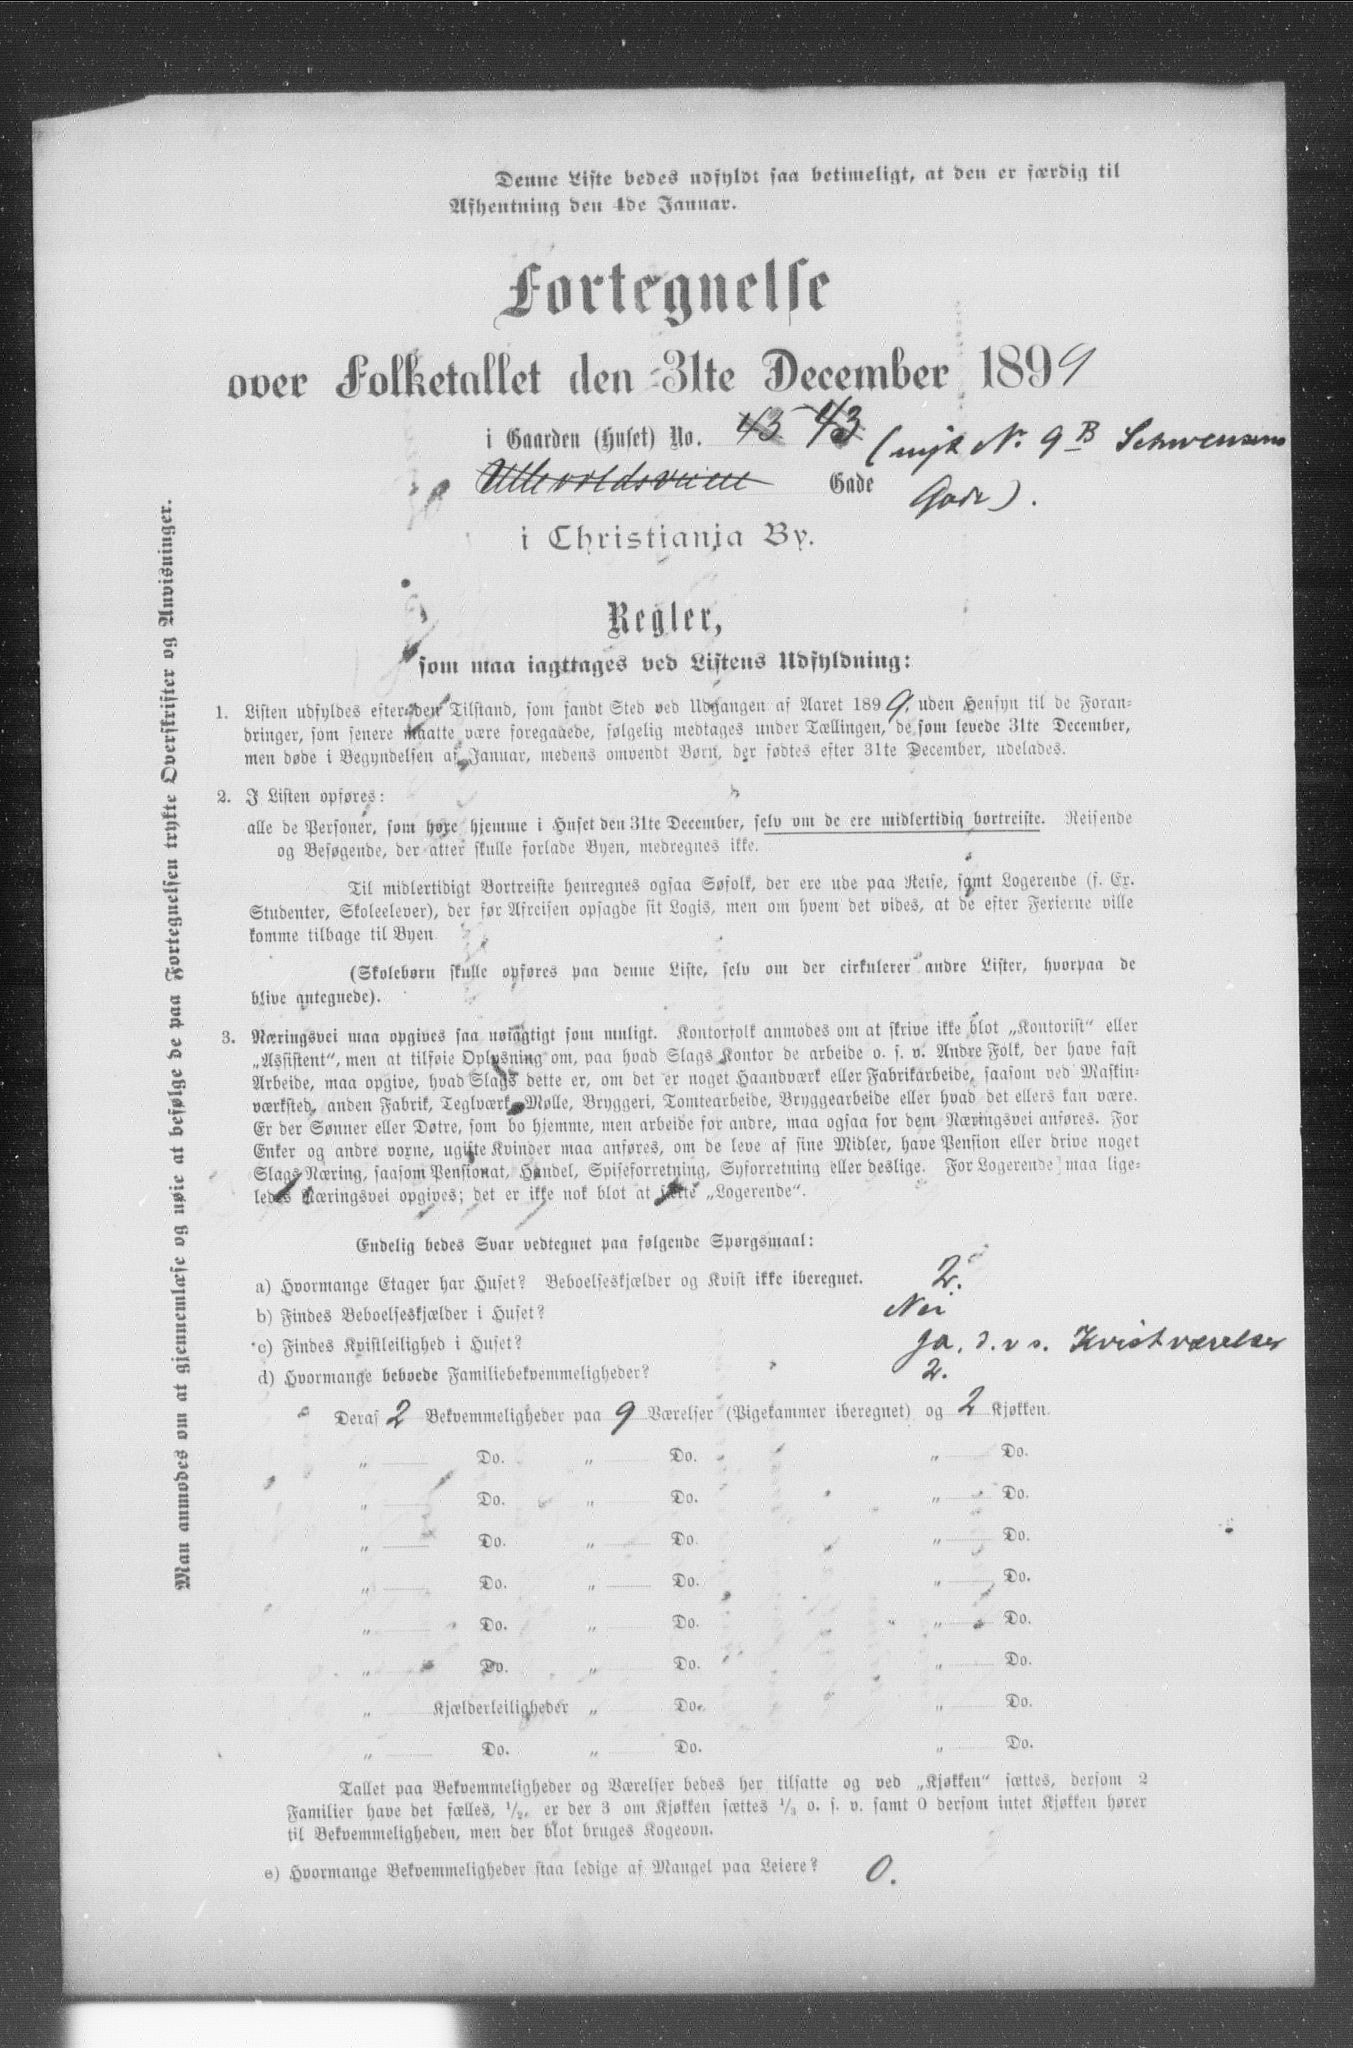 Denne Liste bedes udfyldt saa betimeligt, at den er færdig til
Afhentning den 4de Januar.
Fortegnelse
over Folketallet den 31te December 1899
i Gaarden (Huset) No. 43 43 (nyt No. 9 B Schwensens
Ullevoldsveien Gade Gade).
i Christiania By.
Regler,
som maa iagttages ved Listens Udfyldning:
1. Listen udfyldes efter den Tilstand, som fandt Sted ved Udgangen af Aaret 1899, uden Hensyn til de Foran-
dringer, som senere maatte være foregaaede, følgelig medtages under Tællingen, de som levede 31te December,
men døde i Begyndelsen af Januar, medens omvendt Børn, der fødtes efter 31te December, udelades.
2. I Listen opføres:
alle de Personer, som høre hjemme i Huset den 31te December, selv om de ere midlertidig bortreiste. Reisende
og Besøgende, der atter skulle forlade Byen, medregnes ikke.
Til midlertidigt Bortreiste henregnes ogsaa Søfolk, der ere ude paa Reise, samt Logerende (f. Ex.
Studenter, Skoleelever), der før Afreisen opsagde sit Logis, men om hvem det vides, at de efter Ferierne ville
komme tilbage til Byen
(Skolebørn skulle opføres paa denne Liste, selv om der cirkulerer andre Lister, hvorpaa de
blive antegnede).
3. Næringsvei maa opgives saa nøiagtigt som muligt. Kontorfolk anmodes om at skrive ikke blot „Kontorist“ eller
„Assistent“, men at tilføie Oplysning om, paa hvad Slags Kontor de arbeide o. s. v. Andre Folk, der have fast
Arbeide, maa opgive, hvad Slags dette er, om det er noget Haandværk eller Fabrikarbeide, saasom ved Maskin-
værksted, anden Fabrik, Teglværk, Mølle, Bryggeri, Tomtearbeide, Bryggearbeide eller hvad det ellers kan være.
Er der Sønner eller Døtre, som bo hjemme, men arbeide for andre, maa ogsaa for dem Næringsvei anføres. For
Enker og andre voxne, ugifte Kvinder maa anføres, om de leve af sine Midler, have Pension eller drive noget
Slags Næring, saasom Pensionat, Handel, Spiseforretning, Syforretning eller deslige. For Logerende maa lige-
ledes Næringsvei opgives; det er ikke nok blot at sætte „Logerende“.
Endelig bedes Svar vedtegnet paa følgende Spørgsmaal:
a) Hvormange Etager har Huset? Beboelseskjælder og Kvist ikke iberegnet. 2.
b) Findes Beboelseskjælder i Huset? Nei
c) Findes Kvistleilighed i Huset? Ja, d. v s. Kvistværelser
d) Hvormange beboede Familiebekvemmeligheder? 2.
Deraf 2 Bekvemmeligheder paa 9 Værelser (Pigekammer iberegnet) og 2 Kjøkken.
„ Do. „ Do. „ Do.
„ Do. „ Do. „ Do.
„ Do. „ Do. „ Do.
„ Do. „ Do. „ Do.
„ Do. „ Do. „ Do.
„ Do. „ Do. „ Do.
„ Kjælderleiligheder „ Do. „ Do.
„ Do. „ Do. „ Do.
Tallet paa Bekvemmeligheder og Værelser bedes her tilsatte og ved „Kjøkken“ sættes, dersom 2
Familier have det fælles, 1/2, er der 3 om Kjøkken sættes 1/3 o. s. v. samt 0 dersom intet Kjøkken hører
til Bekvemmeligheden, men der blot bruges Kogeovn.
e) Hvormange Bekvemmeligheder staa ledige af Mangel paa Leiere? 0.
Man anmodes om at gjennemlæse og nøie at befølge de paa Fortegnelsen trykte Overskrifter og Anvisninger.